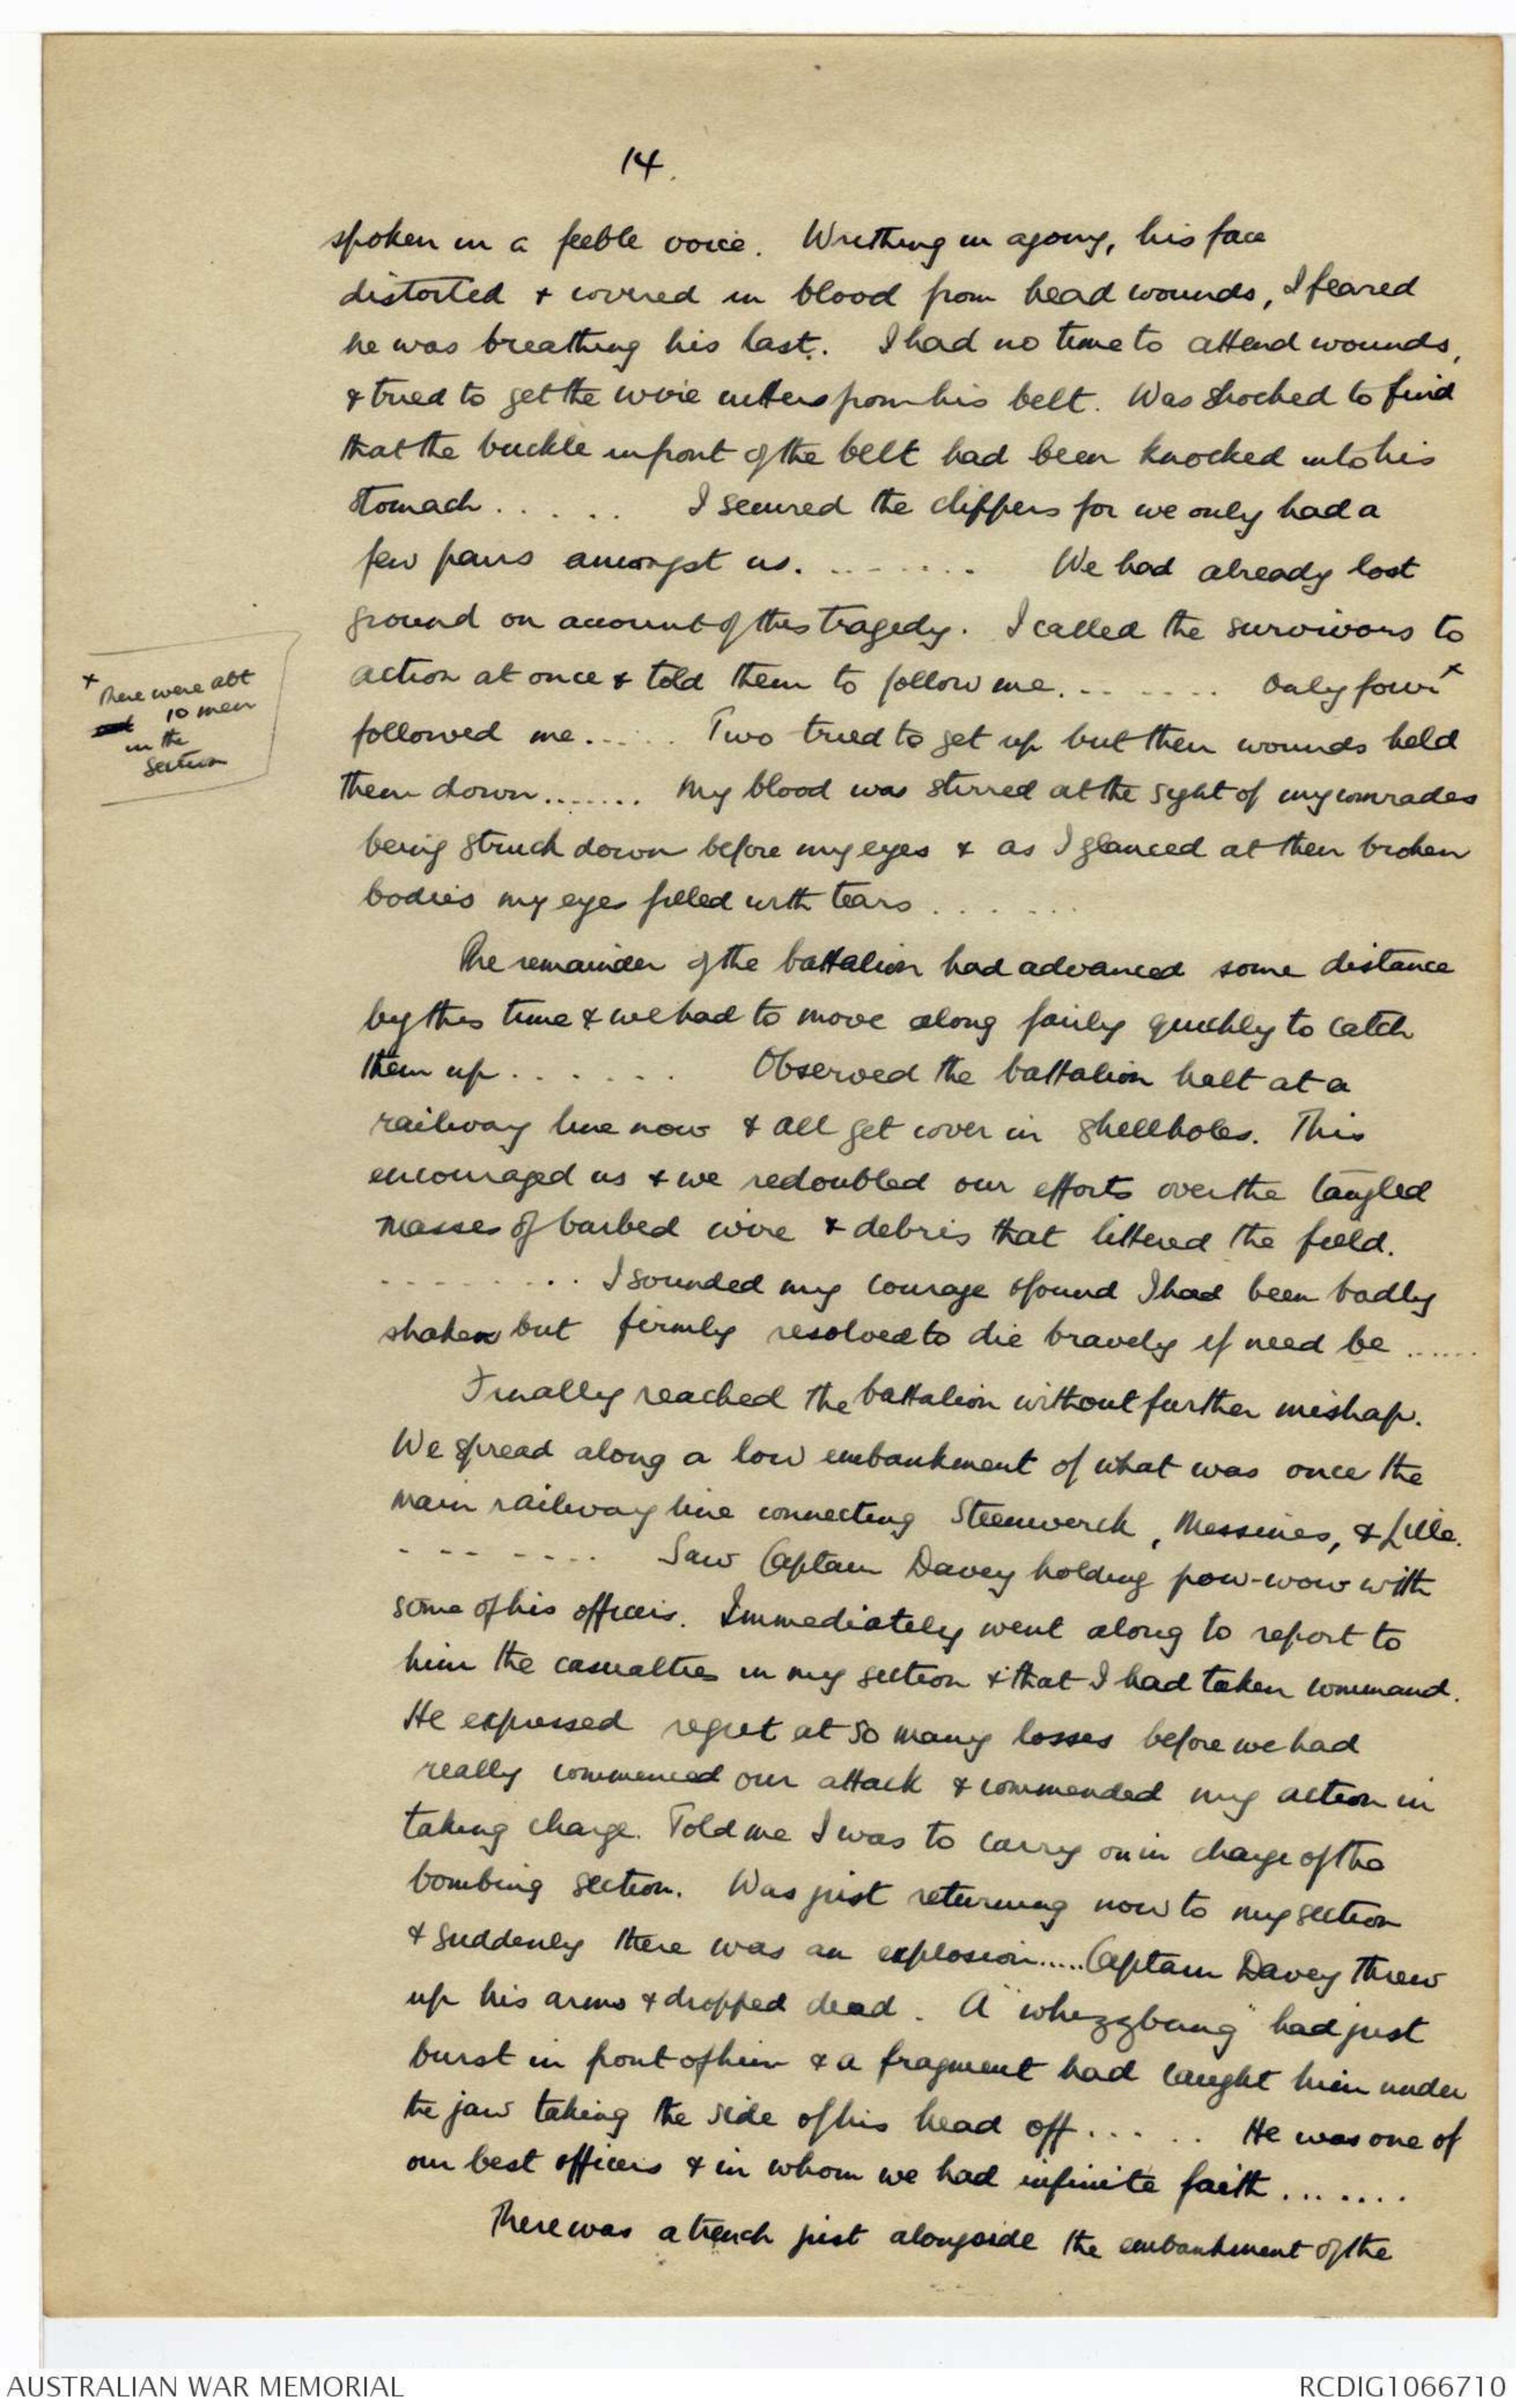 14.
spoken in a feeble voice. Writhing in agony, his face
distorted & covered in blood from head wounds, I feared
he was breathing his last. I had no time to attend wounds,
& tried to get the wire cutters from his belt. Was shocked to find
that the buckle in front of the belt had been knocked into his
stomach . . . . . I secured the clippers for we only had a
few pairs amongst us. . . . . . . . We had already lost
ground on account of this tragedy. I called the survivors to
action at once & told them to follow me. . . . . . . Only four x
followed me. . . . . Two tried to get up but their wounds held
them down....... My blood was stirred at the sight of my comrades
being struck down before my eyes & as I glanced at their broken
bodies my eyes filled with tears . . . . . .
x There were abt
10 men
in the
Section
The remainder of the battalion had advanced some distance
by this time & we had to move along fairly quickly to catch
them up . . . . . . Observed the battalion halt at a
railway line now & all get cover in shellholes. This
encouraged us & we redoubled our efforts over the tangled
masses of barbed wire & debris that littered the field.
. . . . . . . . I sounded my courage & found I had been badly
shaken but firmly resolved to die bravely if need be ......
Finally reached the battalion without further mishap.
We spread along a low embankment of what was once the
main railway line connecting Steenwerck, Messines, & Lille.
. . . . . . . Saw Captain Davey holding pow-wow with
some of his officers. Immediately went along to report to
him the casualties in my section & that I had taken command.
He expressed regret at so many losses before we had
really commenced our attack & commended my action in
taking charge. Told me I was to carry on in charge of the
bombing section. Was just returning now to my section
& suddenly there was an explosion.....Captain Davey threw
up his arms & dropped dead. A "whizzbang" had just
burst in front of him & a fragment had caught him under
the jaw taking the side of his head off . . . . . He was one of
our best officers & in whom we had infinite faith .......
There was a trench just alongside the embankment of the
AUSTRALIAN WAR MEMORIAL
RCDIG1066710